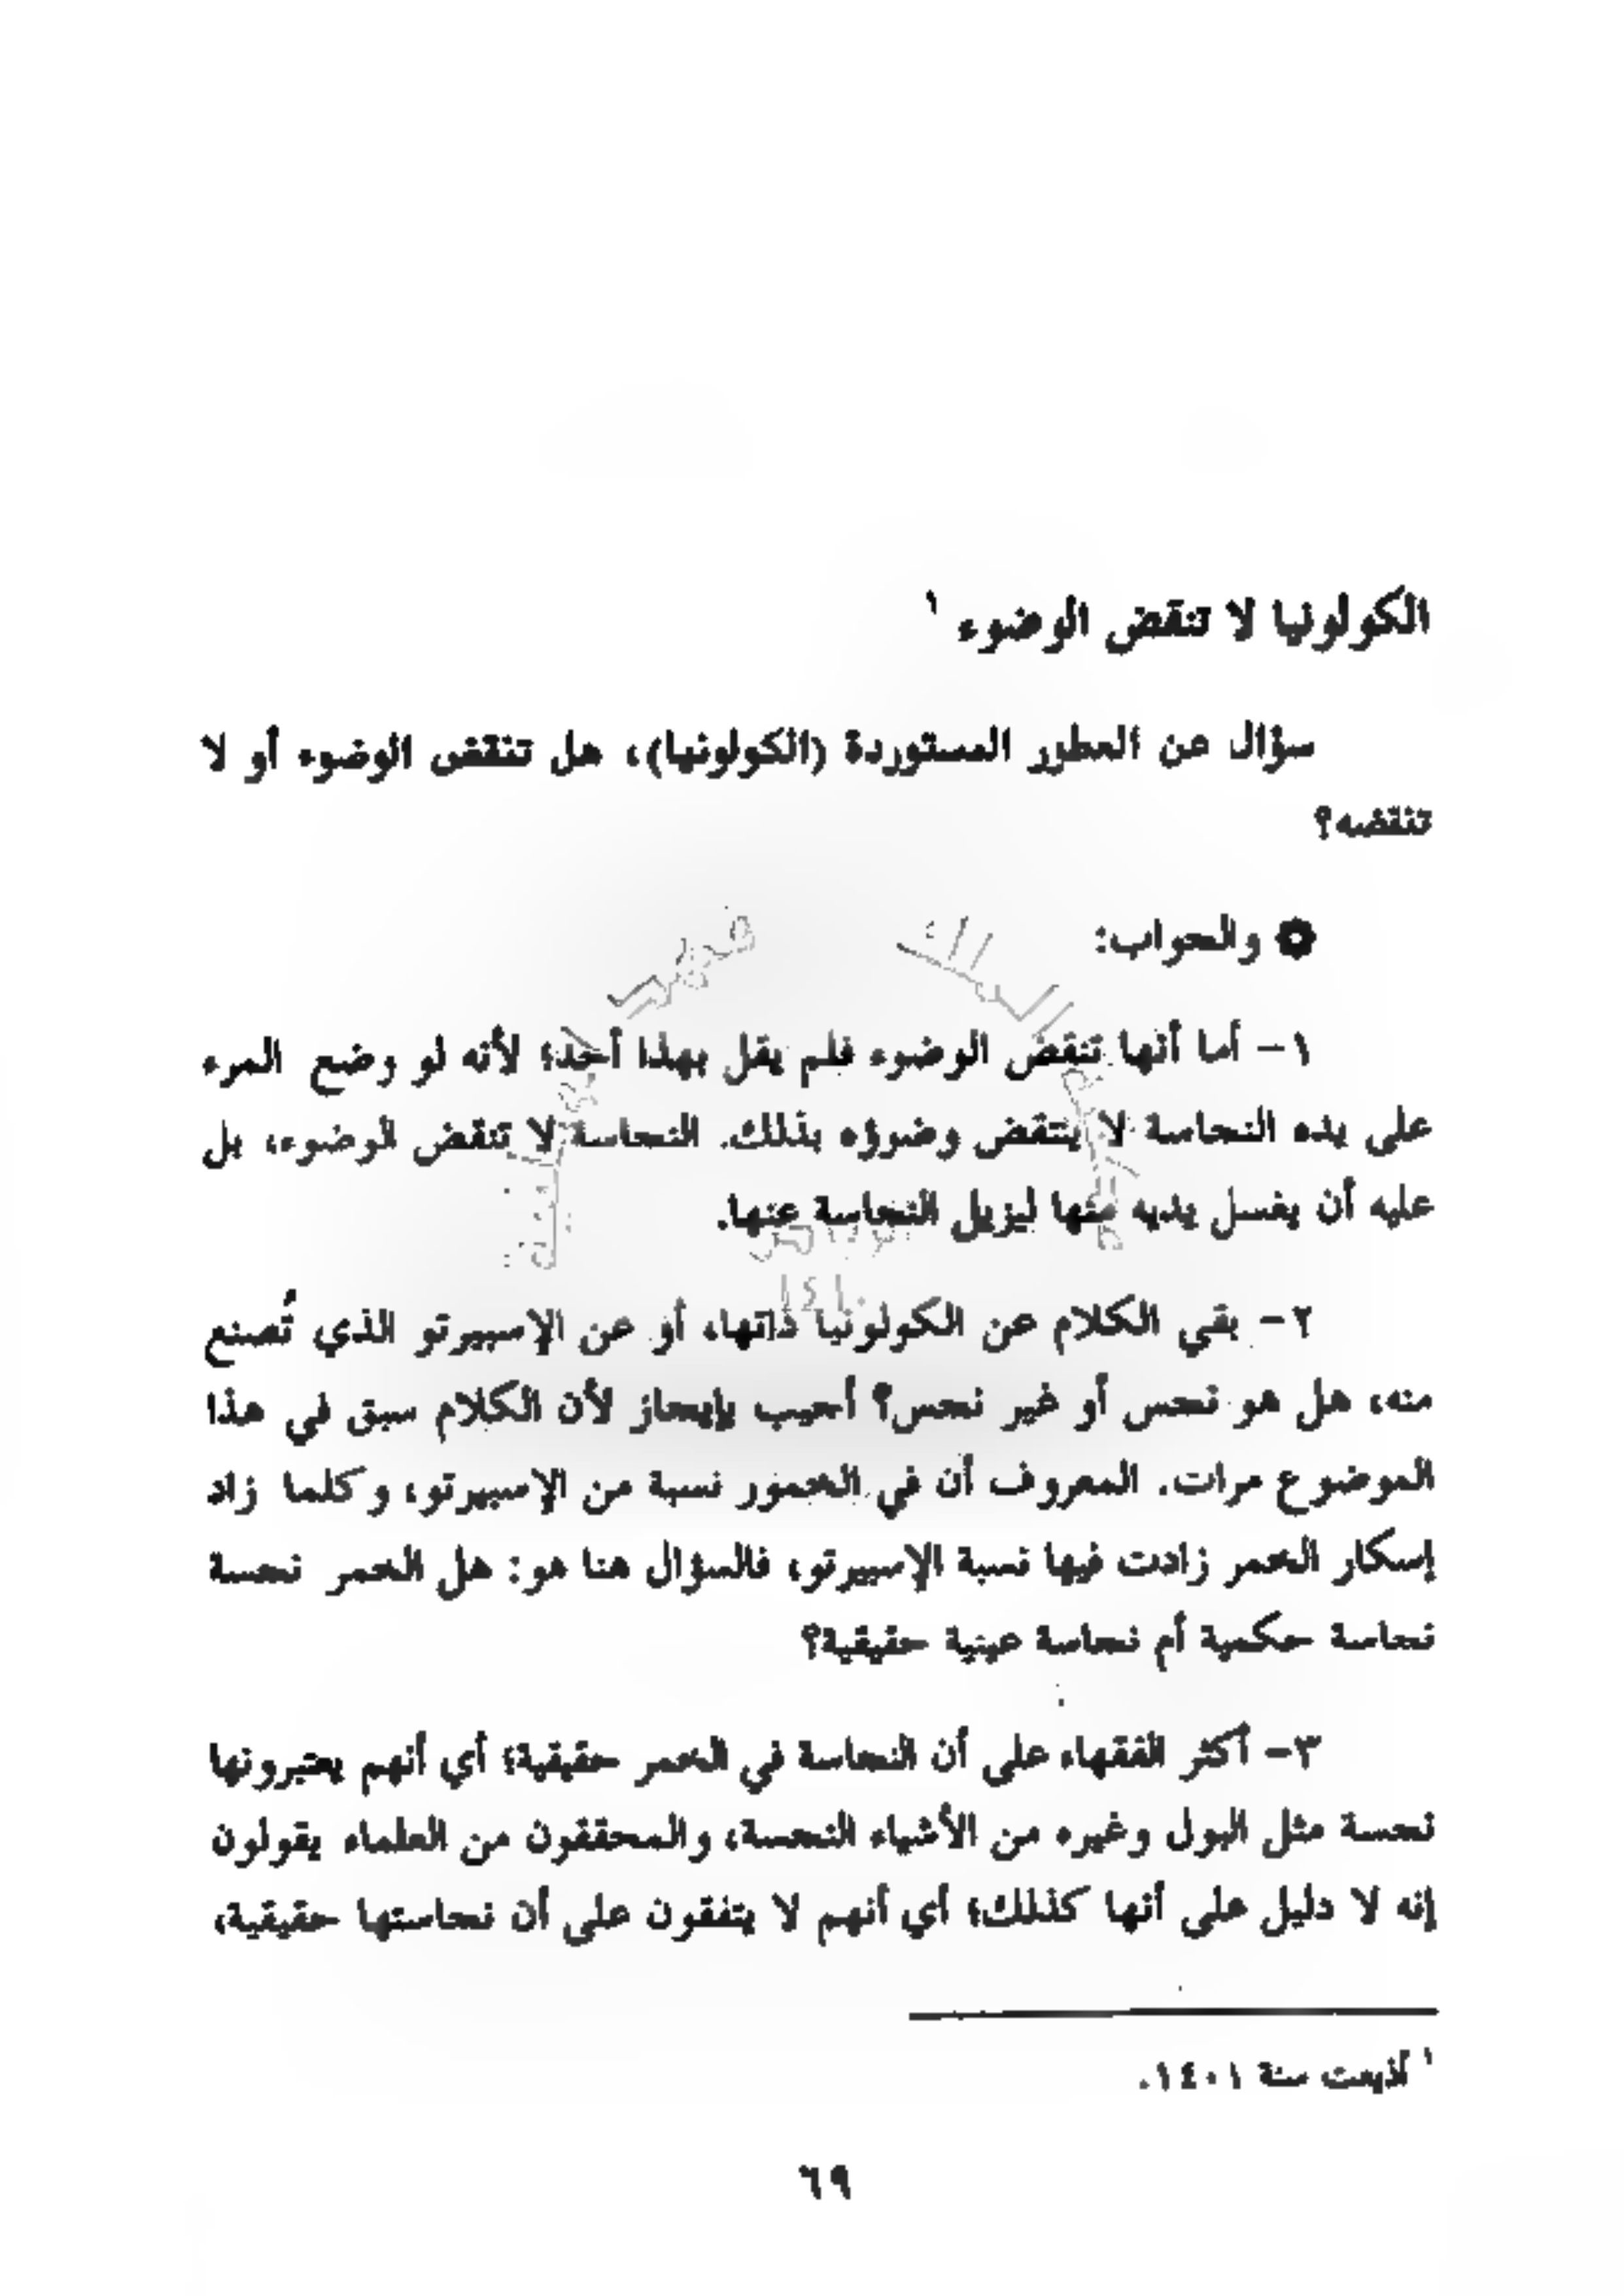 الكولونيا لا تنقض الوضوء ١
سؤال عن العطور المستوردة (الكولونيا)، هل تنقض الوضوء أو لا
تنقضه؟
والجواب:
١- أما أنها تنقض الوضوء فلم يقل بهذا أحد؛ لأنه لو وضع المرء
على يده النجاسة لا ينتقض وضوؤه بذلك. النجاسة لا تنقض الوضوء، بل
عليه أن يغسل يديه منها ليزيل النجاسة عنها.
٢- بقي الكلام عن الكولونيا ذاتها، أو عن الإسبيرتو الذي تُصنع
منه، هل هو نجس أو غير نجس؟ أجيب بإيجاز لأن الكلام سبق في هذا
الموضوع مرات. المعروف أن في الخمور نسبة من الإسبيرتو، وكلما زاد
إسكار الخمر زادت فيها نسبة الإسبيرتو، فالسؤال هنا هو: هل الخمر نجسة
نجاسة حكمية أم نجاسة عينية حقيقية؟
٣- أكثر الفقهاء على أن النجاسة في الخمر حقيقية؛ أي أنهم يعتبرونها
نجسة مثل البول وغيره من الأشياء النجسة، والمحققون من العلماء يقولون
إنه لا دليل على أنها كذلك؛ أي أنهم لا يتفقون على أن نجاستها حقيقية،
١ أذيعت سنة ١٤٠١.
٦٩